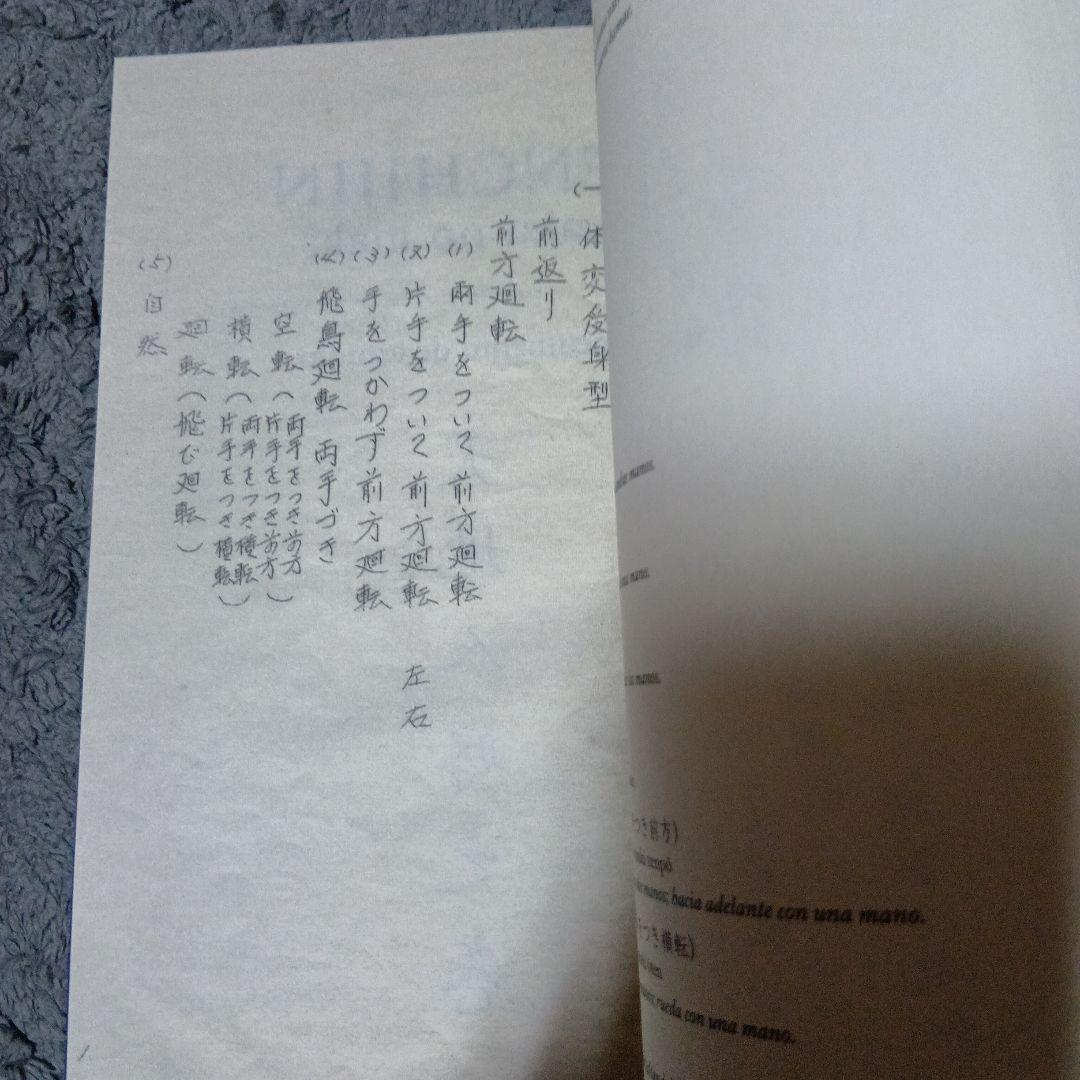 (一
体変受身型
前返り
前方廻転
(1) 両手をついて前方廻転
(2) 片手をついて前方廻転 左右
(3) 手をつかわず前方廻転
(4) 飛鳥廻転 両手づき
空転(両手をつき前方
片手をつき前方)
横転(両手をつき横転
片手をつき横転)
廻転(飛び廻転)
(5) 自然
1
manos.
mano.
manos.
つき前方)
manos; hacia adelante con una mano.
つき横転)
rueda con una mano.